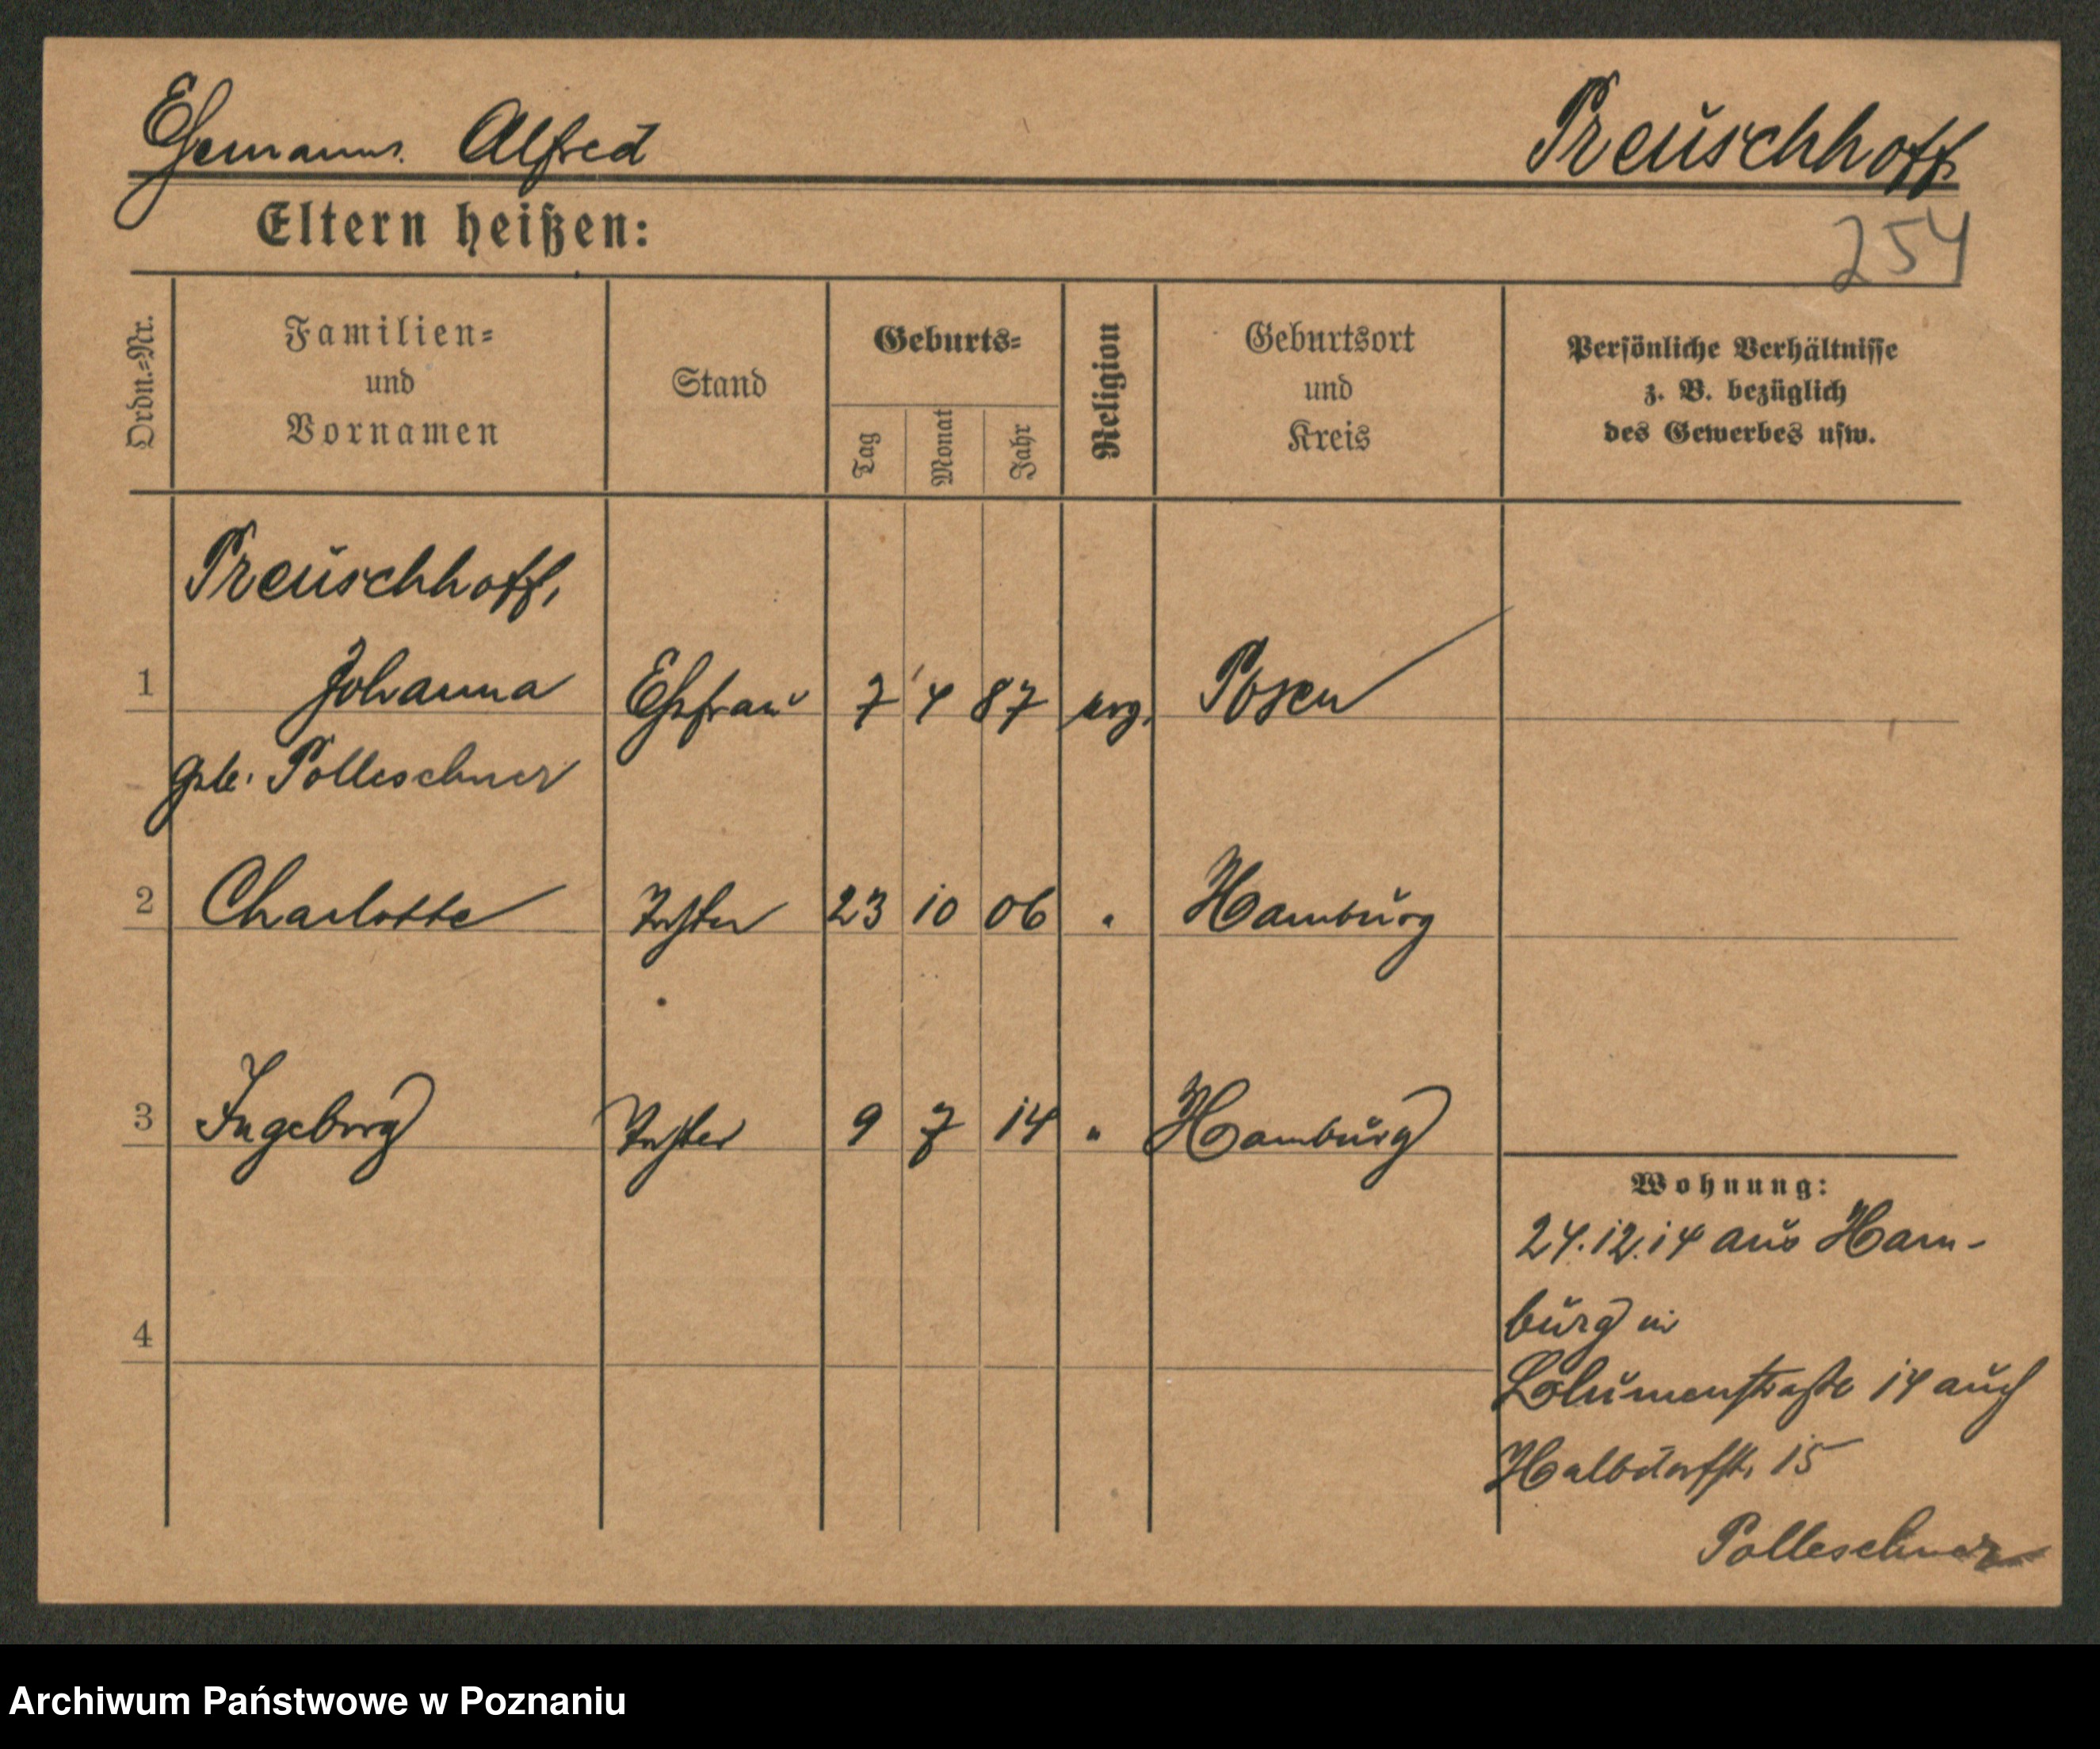 Ehemann: Alfred Preuschhoff
254
Eltern heißen:
Ordn.=Nr.
Familien=
und
Vornamen
Stand
Geburts=
Tag
Monat
Jahr
Religion
Geburtsort
und
Kreis
Persönliche Verhältnisse
z. B. bezüglich
des Gewerbes usw.
Preuschhoff,
1 Johanna Ehefrau 7 4 87 evg. Posen
geb. Polleschner
2 Charlotte Tochter 23 10 06 " Hamburg
3 Ingeborg Tochter 9 7 14 " Hamburg
4
Wohnung:
24.12.14 aus Ham-
burg in
14 auch
Halbdorfstr. 15
Polleschner
Archiwum Państwowe w Poznaniu